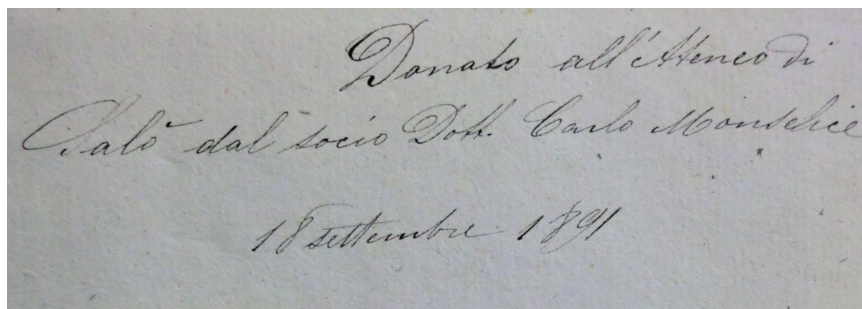 Donato all'Ateneo di
Salò dal socio Dott. Carlo Monselice
18 settembre 1891